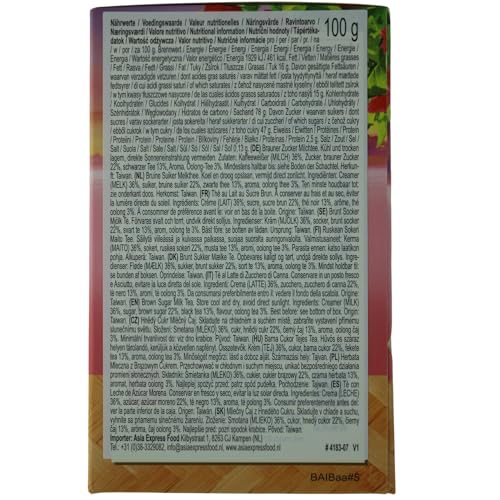 Nährwerte / Voedingswaarde / Valeur nutritionelles / Næringsværdi / Ravintoarvo /
Næringsverdi / Valore nutritivo / Nutritional information / Nutriční hodnoty / Tápértéka-
datok / Wartość odżywcza / Valor nutritivo / Nutričné informácie pro / per / par / pr / na
100 g
/ w / por / za 100 g. Brennwert / Energie / Energi / Energia / Energy / Energie /
Energia / Wartość energetyczna / Valor energético 1929 kJ / 461 kcal, Fett / Vetten / Matières grasses
/ Fett / Rasva / Fedt / Grassi / Fat / Tuky / Zsírok / Tłuszcze / Grasas / Tuk 16 g. Davon gesättigte Fettsäuren /
waarvan verzadigde vetzuren / dont acides gras saturés / varav mättat fett / josta tyydyttynyttä / heraf mættede
fedtsyrer / di cui acidi grassi saturi / of which saturates / z čehož nasycené mastné kyseliny / ebből telített zsírsavak
/ w tym kwasy tłuszczowe nasycone / de las cuales ácidos grasos saturados / z toho nasýtené 15 g, Kohlenhydrate
/ Koolhydraten / Glucides / Kolhydrat / Hiilihydraatit / Kulhydrat / Carboidrati / Carbohydrate / Uhlohydráty /
Szénhidrátok / Węglowodany / Hidratos de carbono / Sacharidy 78 g. Davon Zucker / waarvan suikers / dont
sucres / varav sockerarter / josta sokereita / heraf sukkerarter / di cui zuccheri / of which sugars / z čehož cukry /
ebből cukrok / w tym cukry / de los cuales azúcares / z toho cukry 47 g. Eiweiss / Eiwitten / Protéines / Protein
/ Proteiini / Protein / Proteine / Protein / Proteiny / Bílkoviny / Fehérje / Białko / Proteínas / Proteíny 2,5 g. Salz / Zout / Sel /
Salt / Suola / Salt / Sale / Salt / Sůl / Só / Sól / Sal / Soľ 0,13 g. (DE) Brauner Zucker Milchtee. Kühl und trocken
lagern, direkte Sonneneinstrahlung vermeiden. Zutaten: Kaffeeweißer (MILCH) 36%, Zucker, brauner Zucker
22%, schwarzer Tee 13%, Aroma, Oolong-Tee 3%. Mindestens haltbar bis: siehe Boden der Schachtel. Herkunft:
Taiwan. (NL) Bruine Suiker Melkthee. Koel en droog opslaan. Vermijd direct zonlicht. Ingrediënten: Creamer
(MELK) 36%, suiker, bruine suiker 22%, zwarte thee 13%, aroma, oolong thee 3%. Ten minste houdbaar tot:
zie onderkant doos. Herkomst: Taiwan. (FR) Thé au Lait au Sucre Brun. À conserver au frais et au sec, éviter
la lumière directe du soleil. Ingrédients: Crème (LAIT) 36%, sucre, sucre brun 22%, thé noir 13%, arôme, thé
oolong 3%. À consommer de préférence avant le: voir en bas de la boite. Origine: Taiwan. (SE) Brunt Socker
Mjölk Te. Förvaras svalt och torrt, undvik direkt solljus. Ingredienser: Kräm (MJÖLK) 36%, socker, brunt socker
22%, svart te 13%, arom, oolong te 3%. Bäst före: se botten av lådan. Ursprung: Taiwan. (FI) Ruskean Sokeri
Maito Tee. Säilytä viileässä ja kuivassa paikassa, suojaa suoralta auringonvalolta. Valmistusaineet: Kerma
(MAITO) 36%, sokeri, ruskea sokeri 22%, musta tee 13%, aromi, oolong tee 3%. Parasta ennen: katso laatikon
pohja. Alkuperä: Taiwan. (DK) Brunt Sukker Mælkete. Opbevares køligt og tørt, undgå direkte sollys. Ingre-
dienser: Fløde (MÆLK) 36%, sukker, brun sukker 22%, sort te 13%, aroma, oolong te 3%. Mindst holdbar til:
se bunden af boksen. Oprindelse: Taiwan. (IT) Tè al Latte di Zucchero di Canna. Conservare in un posto fresco
e Asciutto, evitare la luce diretta del sole. Ingredienti: Crema (LATTE) 36%, zucchero, zucchero di canna 22%,
tè nero 13%, aroma, tè oolong 3%. Da consumarsi preferibilmente entro il: vedere il fondo della scatola. Origine:
Taiwan. (EN) Brown Sugar Milk Tea. Store cool and dry, avoid direct sunlight. Ingredients: Creamer (MILK)
36%, sugar, brown sugar 22%, black tea 13%, flavour, oolong tea 3%. Best before: see bottom of box. Origin:
Taiwan. (CZ) Hnědý Cukr Mléčný Čaj. Skladujte na chladném a suchém místě, zabraňte vystavení přímému
slunečnímu světlu. Složení: Smetana (MLÉKO) 36%, cukr, hnědý cukr 22%, černý čaj 13%, aroma, oolong čaj
3%. Minimální trvanlivost do: viz dno krabice. Původ: Taiwan. (HU) Barna Cukor Tejes Tea. Hűvös és száraz
helyen tárolandó, kerüljük a közvetlen napfényt. Összetevők: Krém (TEJ) 36%, cukor, barna cukor 22%, fekete
tea 13%, aroma, oolong tea 3%. Minőségét megőrzi: lásd a doboz alját. Származási hely: Taiwan. (PL) Herbata
Mleczna z Brązowym Cukrem. Przechowywać w chłodnym i suchym miejscu, unikać bezpośredniego działania
promieni słonecznych. Składniki: Śmietana (MLEKO) 36%, cukier, cukier brązowy 22%, czarna herbata 13%,
aromat, herbata oolong 3%. Najlepiej spożyć przed: patrz spód pudełka. Pochodzenie: Tajwan. (ES) Té con
Leche de Azúcar Moreno. Conservar en fresco y seco, evitar la luz solar directa. Ingredientes: Crema (LECHE)
36%, azúcar, azúcar moreno 22%, té negro 13%, aroma, té oolong 3%. Consumir preferentemente antes del:
ver la parte inferior de la caja. Origen: Taiwan. (SK) Mliečny Čaj z Hnedého Cukru. Skladujte v chlade a suchu,
vyhnite sa priamemu slnečnému žiareniu. Zloženie: Smotana (MLIEKO) 36%, cukor, hnedý cukor 22%, čierny čaj
13%, aróma, oolong čaj 3%. Najlepšie použiť pred: pozri spodok krabice. Pôvod: Taiwan
Importer: Asia Express Food Kilbystraat 1, 8263 CJ Kampen (NL)
Tel.: +31(0)38-3329082, info@asiaexpressfood.nl, www.asiaexpressfood.nl
# 4183-07 V1
BAIBaa#5